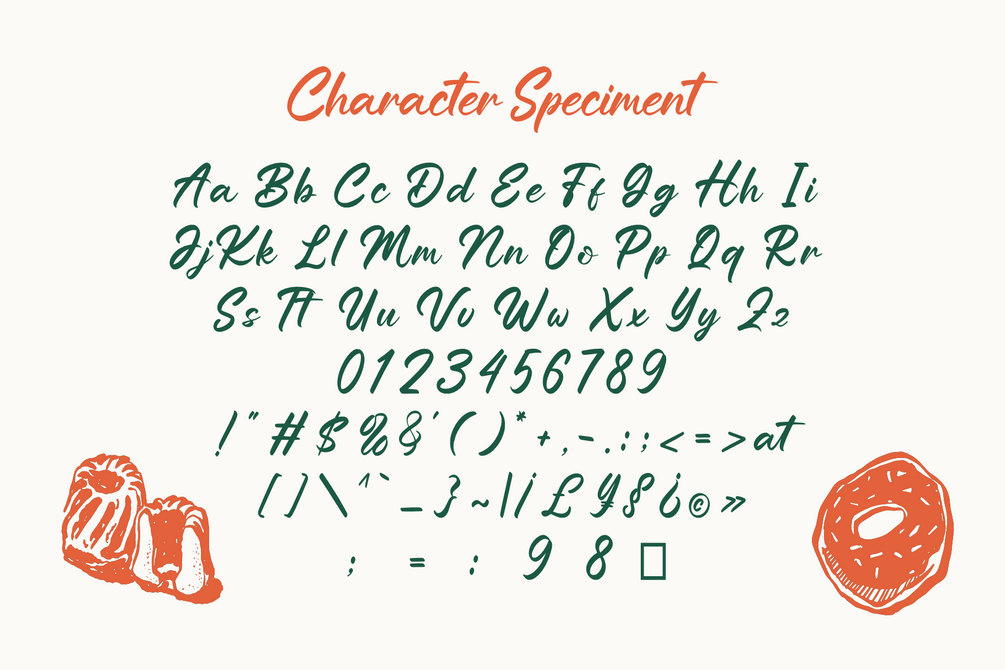 Character Speciment
Aa Bb Cc Dd Ee Ff Gg Hh Ii
Jj Kk Ll Mm Nn Oo Pp Qq Rr
Ss Tt Uu Vv Ww Xx Yy Zz
0123456789
! " # $ % & ' ( ) * + , - . : ; < = > at
[ ] \ ^ ` _ } ~ | ¡ £ ¥ § ¿ © »
; = : 9 8 □